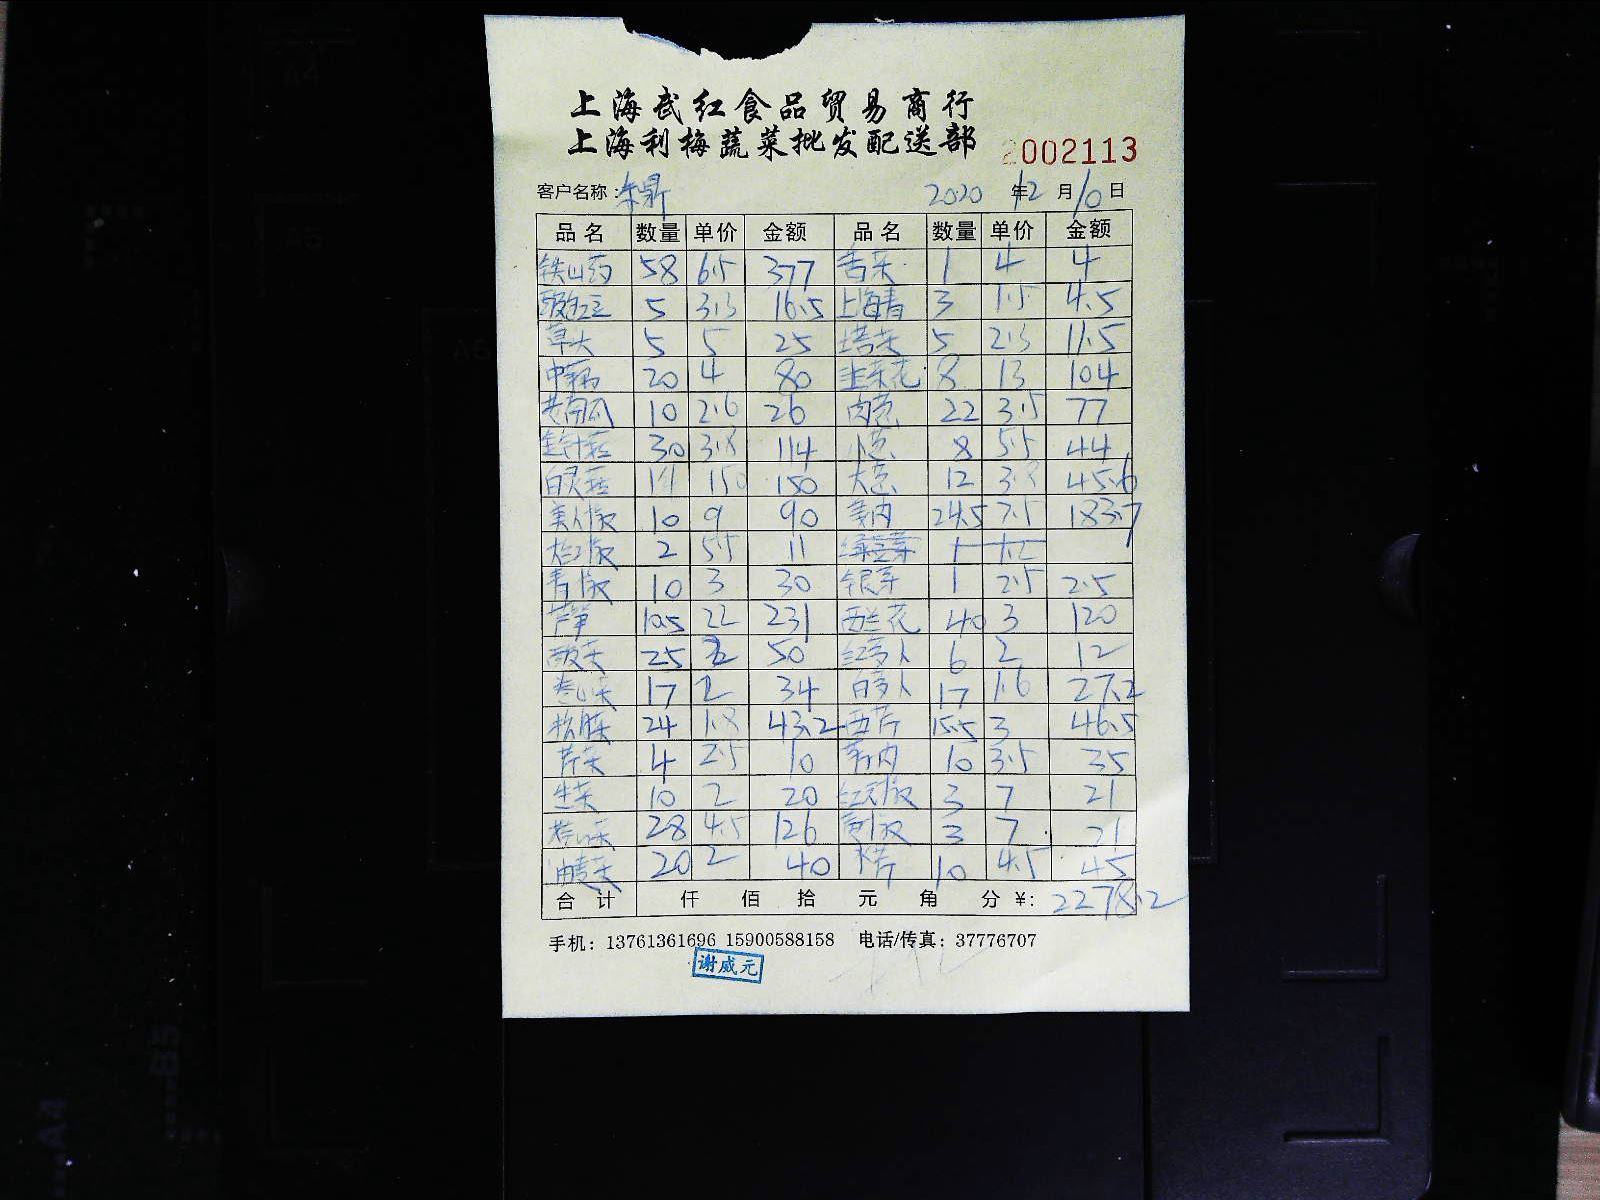 上海武红食品贸易商行
上海利梅蔬菜批发配送部
2002113
客户名称: 2020 年 12 月 10 日
品名 数量 单价 金额 品名 数量 单价 金额
铁山药 58 6.5 377 苦菜 1 4 4
5 3.3 16.5 上海青 3 1.5 4.5
草头 5 5 25 塔菜 5 2.3 11.5
20 4 80 韭菜花 8 13 104
老南瓜 10 2.6 26 肉葱 22 3.5 77
金针菇 30 3.8 114 小葱 8 5.5 44
白灵菇 150 150 大葱 12 3.8 45.6
美人椒 10 9 90 24.5 7.5 183.7
2 5.5 11 绿豆芽 1 1.2
青椒 10 3 30 银芽 1 2.5 2.5
芦笋 10.5 22 231 西兰花 40 3 120
25 2 50 红萝卜 6 2 12
卷心菜 17 2 34 白萝卜 17 1.6 27.2
24 1.8 43.2 西芹 15.5 3 46.5
芹菜 4 2.5 10 10 3.5 35
生菜 10 2 20 红椒 3 7 21
28 4.5 126 黄椒 3 7 21
油麦菜 20 2 40 水芹 10 4.5 45
合计 仟 佰 拾 元 角 分 ¥: 2278.2
手机: 13761361696 15900588158 电话/传真: 37776707
谢威元